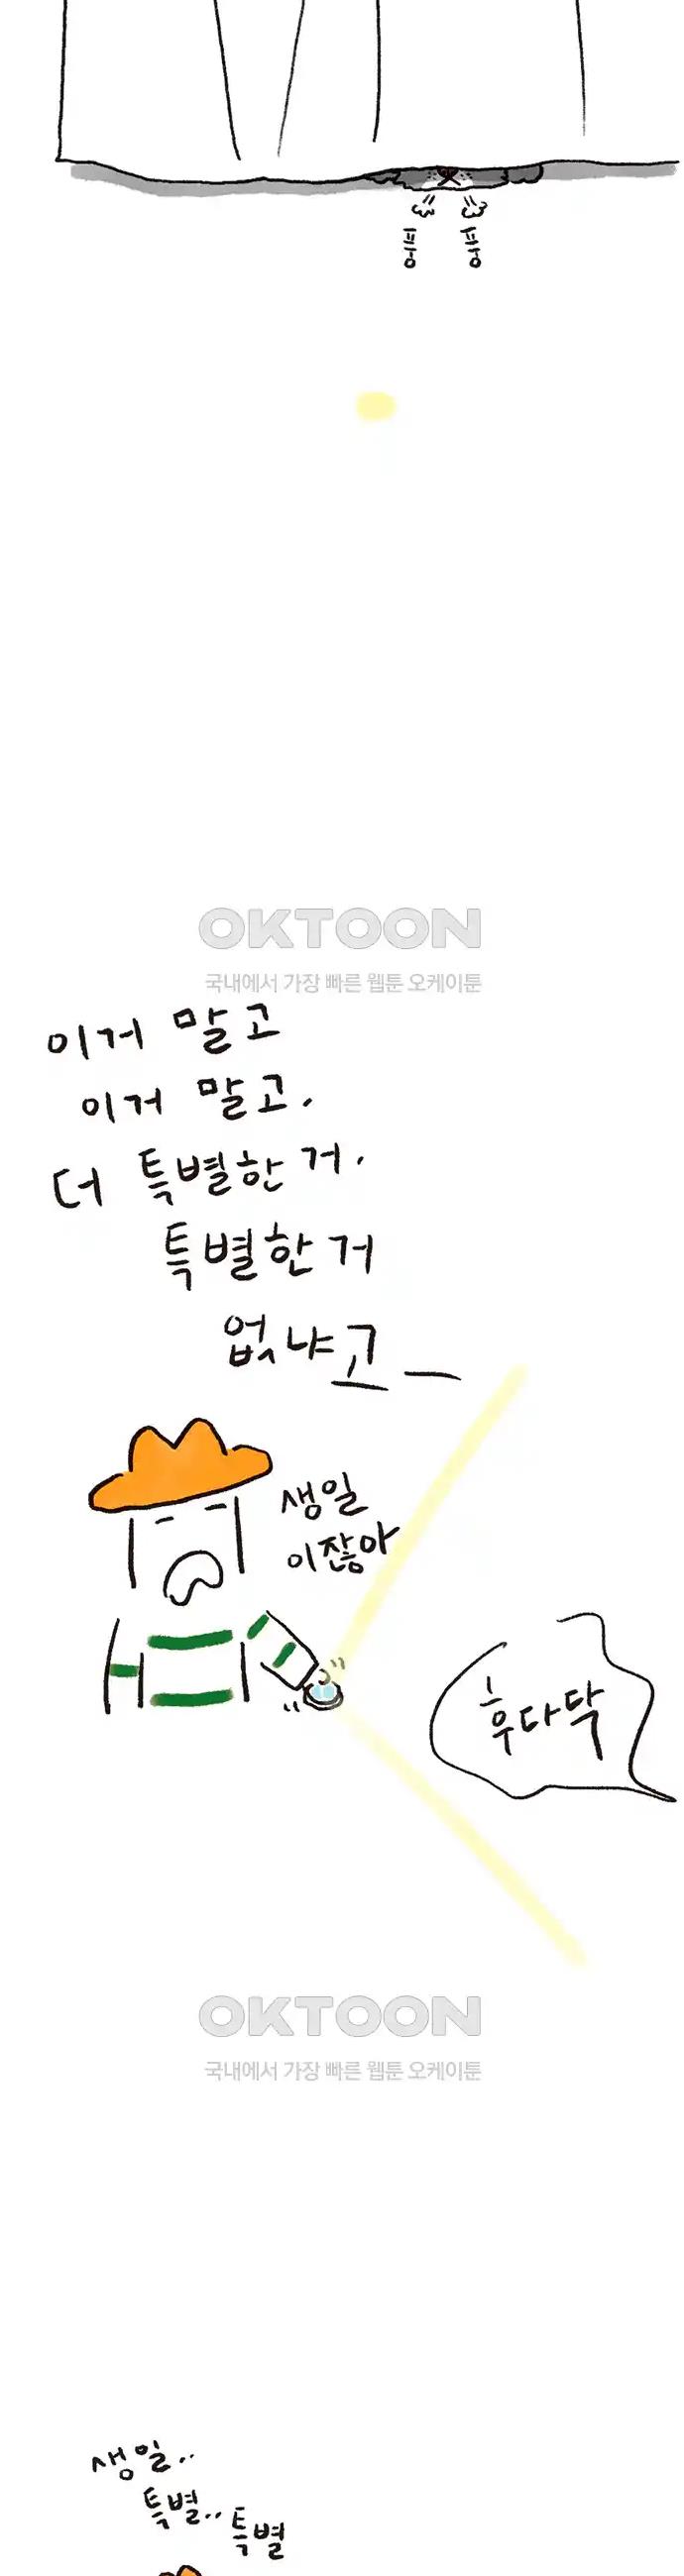 풍 풍
OKTOON
국내에서 가장 빠른 웹툰 오케이툰
이거 말고
이거 말고,
더 특별한 거,
특별한 거
없냐고—
생일
이잖아
후다닥
OKTOON
국내에서 가장 빠른 웹툰 오케이툰
생일..
특별.. 특별